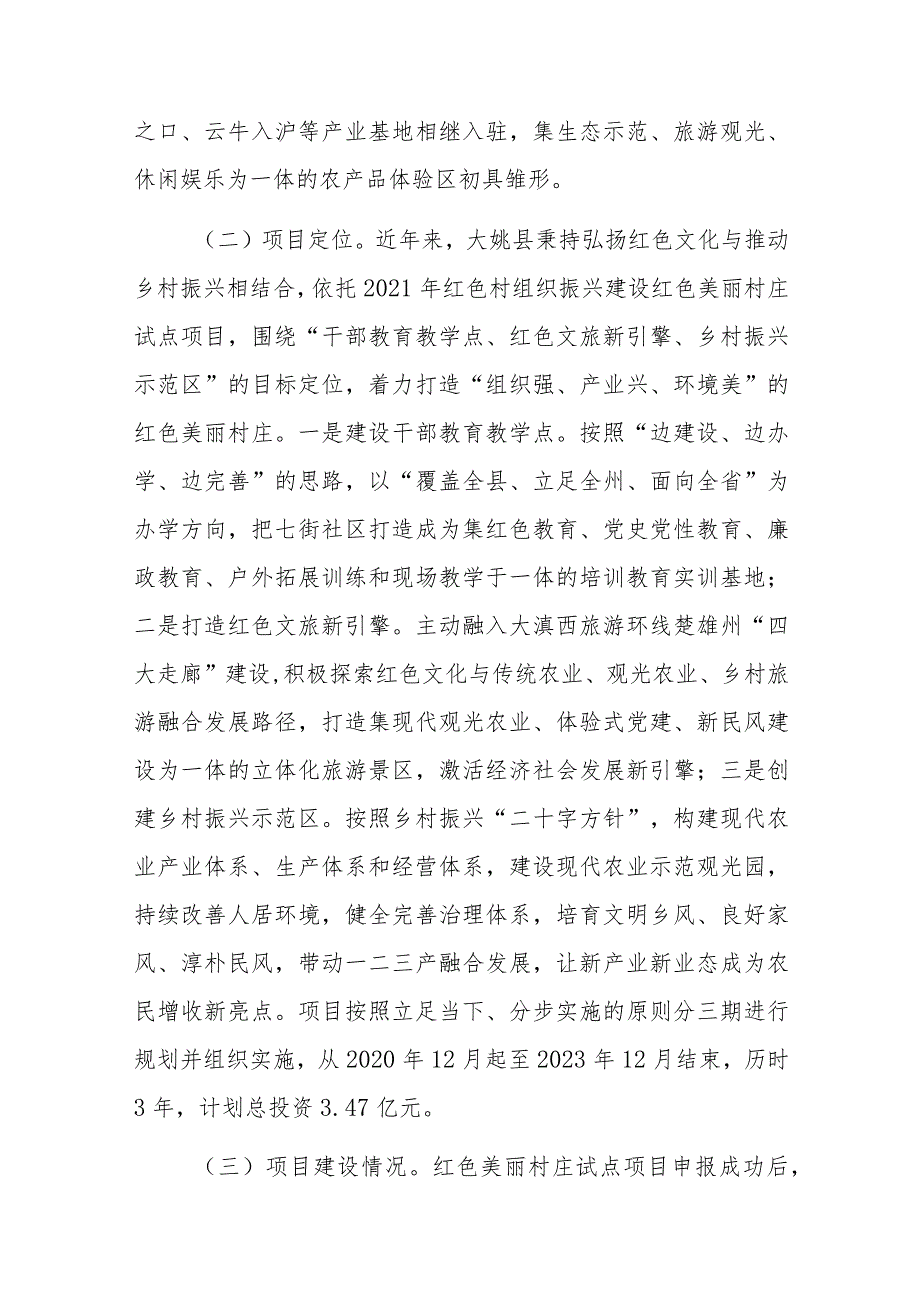 之口、云牛入沪等产业基地相继入驻，集生态示范、旅游观光、
休闲娱乐为一体的农产品体验区初具雏形。
（二）项目定位。近年来，大姚县秉持弘扬红色文化与推动
乡村振兴相结合，依托2021年红色村组织振兴建设红色美丽村庄
试点项目，围绕“干部教育教学点、红色文旅新引擎、乡村振兴
示范区”的目标定位，着力打造“组织强、产业兴、环境美”的
红色美丽村庄。一是建设干部教育教学点。按照“边建设、边办
学、边完善”的思路，以“覆盖全县、立足全州、面向全省”为
办学方向，把七街社区打造成为集红色教育、党史党性教育、廉
政教育、户外拓展训练和现场教学于一体的培训教育实训基地；
二是打造红色文旅新引擎。主动融入大滇西旅游环线楚雄州“四
大走廊”建设,积极探索红色文化与传统农业、观光农业、乡村旅
游融合发展路径，打造集现代观光农业、体验式党建、新民风建
设为一体的立体化旅游景区，激活经济社会发展新引擎；三是创
建乡村振兴示范区。按照乡村振兴“二十字方针”，构建现代农
业产业体系、生产体系和经营体系，建设现代农业示范观光园，
持续改善人居环境，健全完善治理体系，培育文明乡风、良好家
风、淳朴民风，带动一二三产融合发展，让新产业新业态成为农
民增收新亮点。项目按照立足当下、分步实施的原则分三期进行
规划并组织实施，从2020年12月起至2023年12月结束，历时
3年，计划总投资3.47亿元。
（三）项目建设情况。红色美丽村庄试点项目申报成功后，